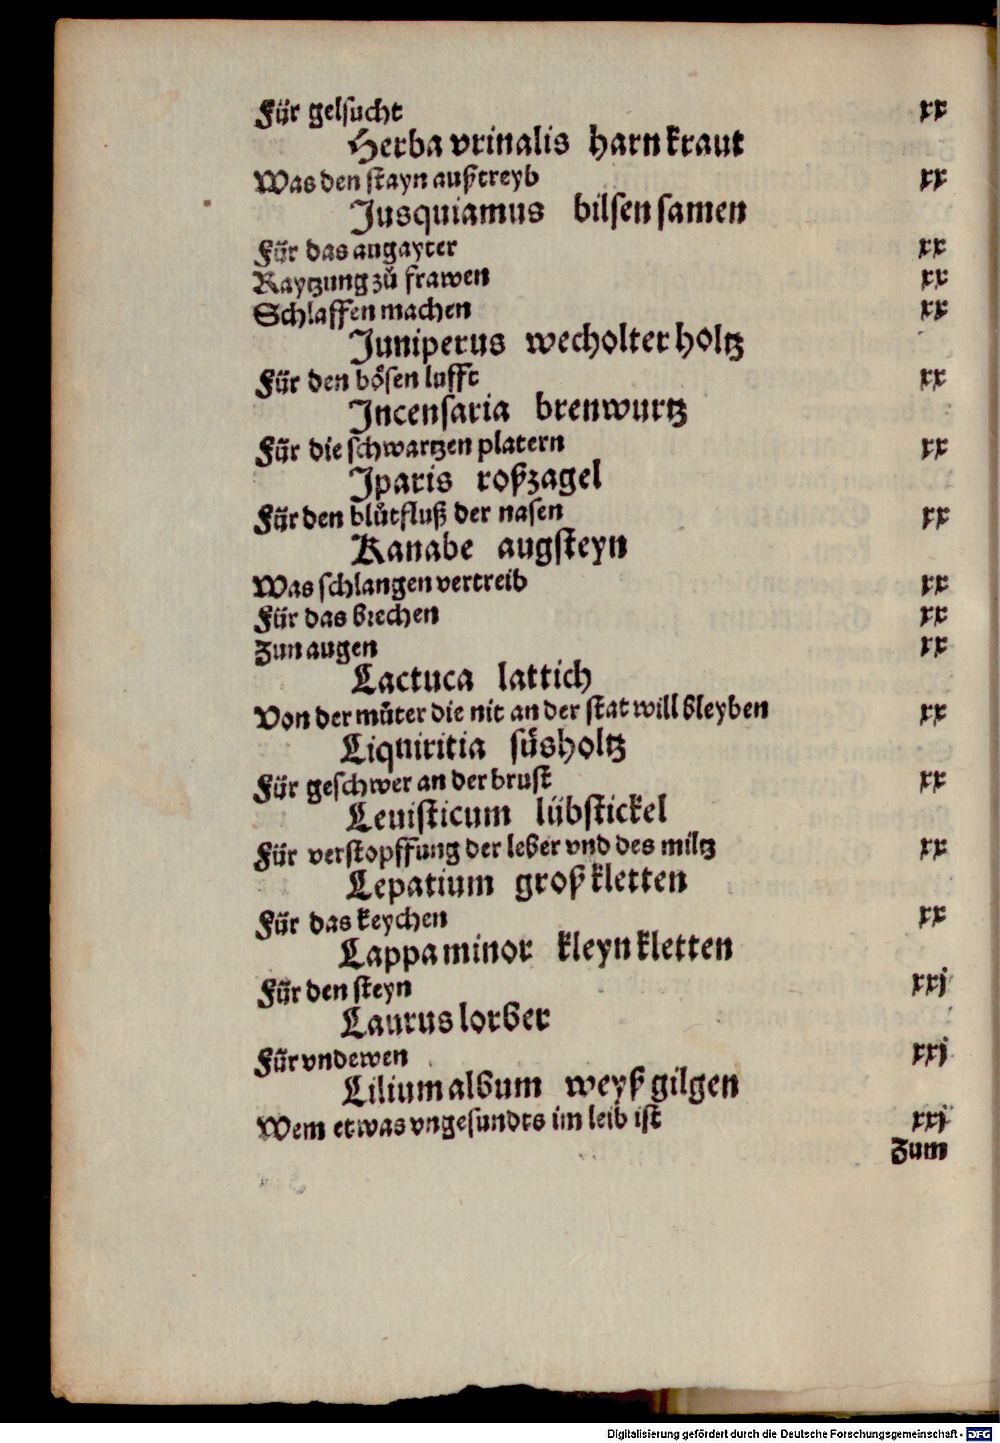 Für gelſucht xx
Herba vrinalis harn kraut
Was den ſtayn außtreyb xx
Jusquiamus bilſen ſamen
Für das augayter xx
Raytzung zů frawen xx
Schlaffen machen xx
Juniperus wecholter holtz
Für den böſen lufft xx
Incenſaria brenwurtz
Für die ſchwartzen platern xx
Iparis roßzagel
Für den blůtfluß der naſen xx
Kanabe augſteyn
Was ſchlangen vertreib xx
Für das brechen xx
Zun augen xx
Lactuca lattich
Von der můter die nit an der ſtat will bleyben xx
Liquiritia ſüsholtz
Für geſchwer an der bruſt xx
Leuiſticum lübſtickel
Für verſtopffung der leber vnd des miltz xx
Lepatium groß kletten
Für das keychen xx
Lappa minor kleyn kletten
Für den ſteyn xxj
Laurus lorber
Für vndewen xxj
Lilium album weyß gilgen
Wem etwas vngeſundts im leib iſt xxj
Zum
Digitalisierung gefördert durch die Deutsche Forschungsgemeinschaft - DFG